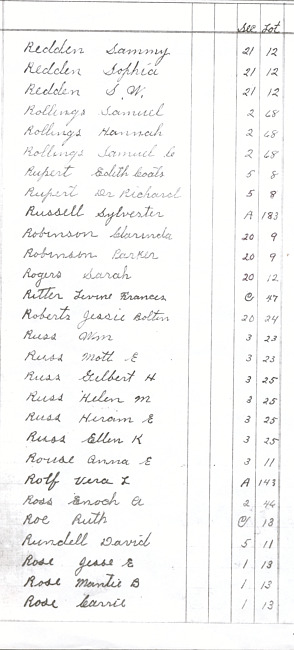 Sec Lot
Redden Sammy 21 12
Redden Sophia 21 12
Redden S. W. 21 12
Rollings Samuel 2 68
Rollings Hannah 2 68
Rollings Samuel C 2 68
Rupert Edith Coats 5 8
Rupert Dr Richard 5 8
Russell Sylvester A 183
Robinson Clarinda 20 9
Robinson Parker 20 9
Rogers Sarah 20 12
Ritter Levine Frances C 47
Roberts Jessie Bolton 20 24
Russ Wm 3 23
Russ Mott E 3 23
Russ Gilbert H 3 25
Russ Helen M 3 25
Russ Hiram E 3 25
Russ Ellen K 3 25
Rouse Anna E 3 11
Rolf Vera L A 143
Ross Enoch A 2 44
Roe Ruth C 13
Rundell David 5 11
Rose Jesse E 1 13
Rose Mantie B 1 13
Rose Carrie 1 13